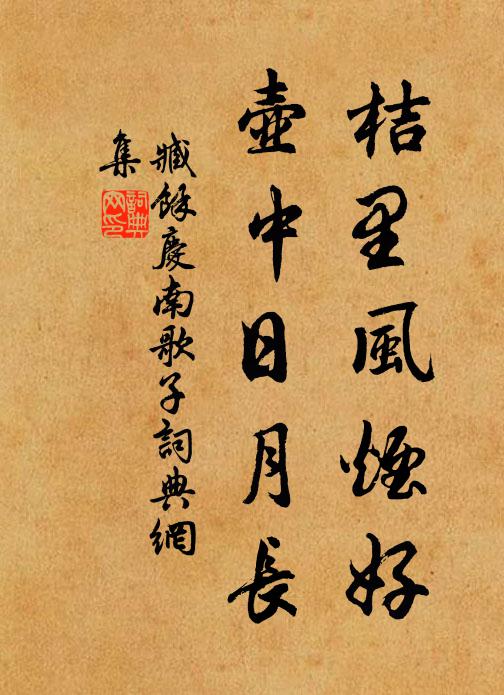 桔里風煙好
壺中日月長
臧餘慶南歌子詞典網
集
詞典
网印